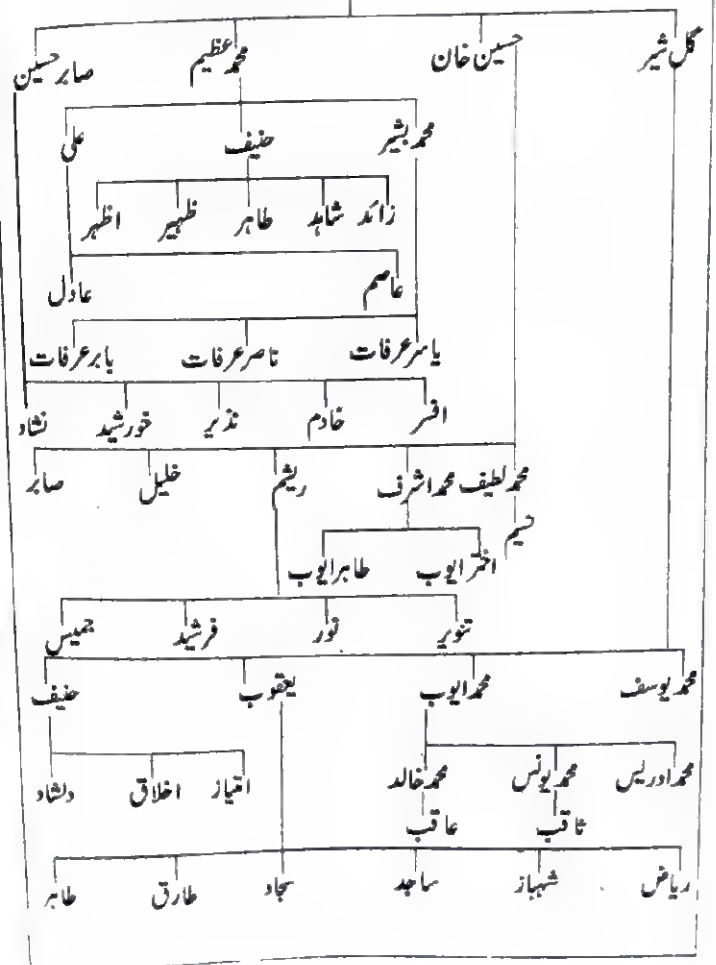 گل شیر حسین خان محمد عظیم صابر حسین
محمد بشیر حنیف علی
زائد شاہد طاہر ظہیر اظہر
عاصم عادل
یاسر عرفات ناصر عرفات بابر عرفات
افسر خادم نذیر خورشید نشاد
محمد لطیف محمد اشرف ریشم خلیل صابر
نسیم
اختر ایوب طاہر ایوب
تنویر نور فرشید جمیس
محمد یوسف محمد ایوب یعقوب حنیف
محمد ادریس محمد یونس محمد خالد امتیاز اخلاق دلشاد
ثاقب عاقب
ریاض شہباز ساجد سجاد طارق طاہر